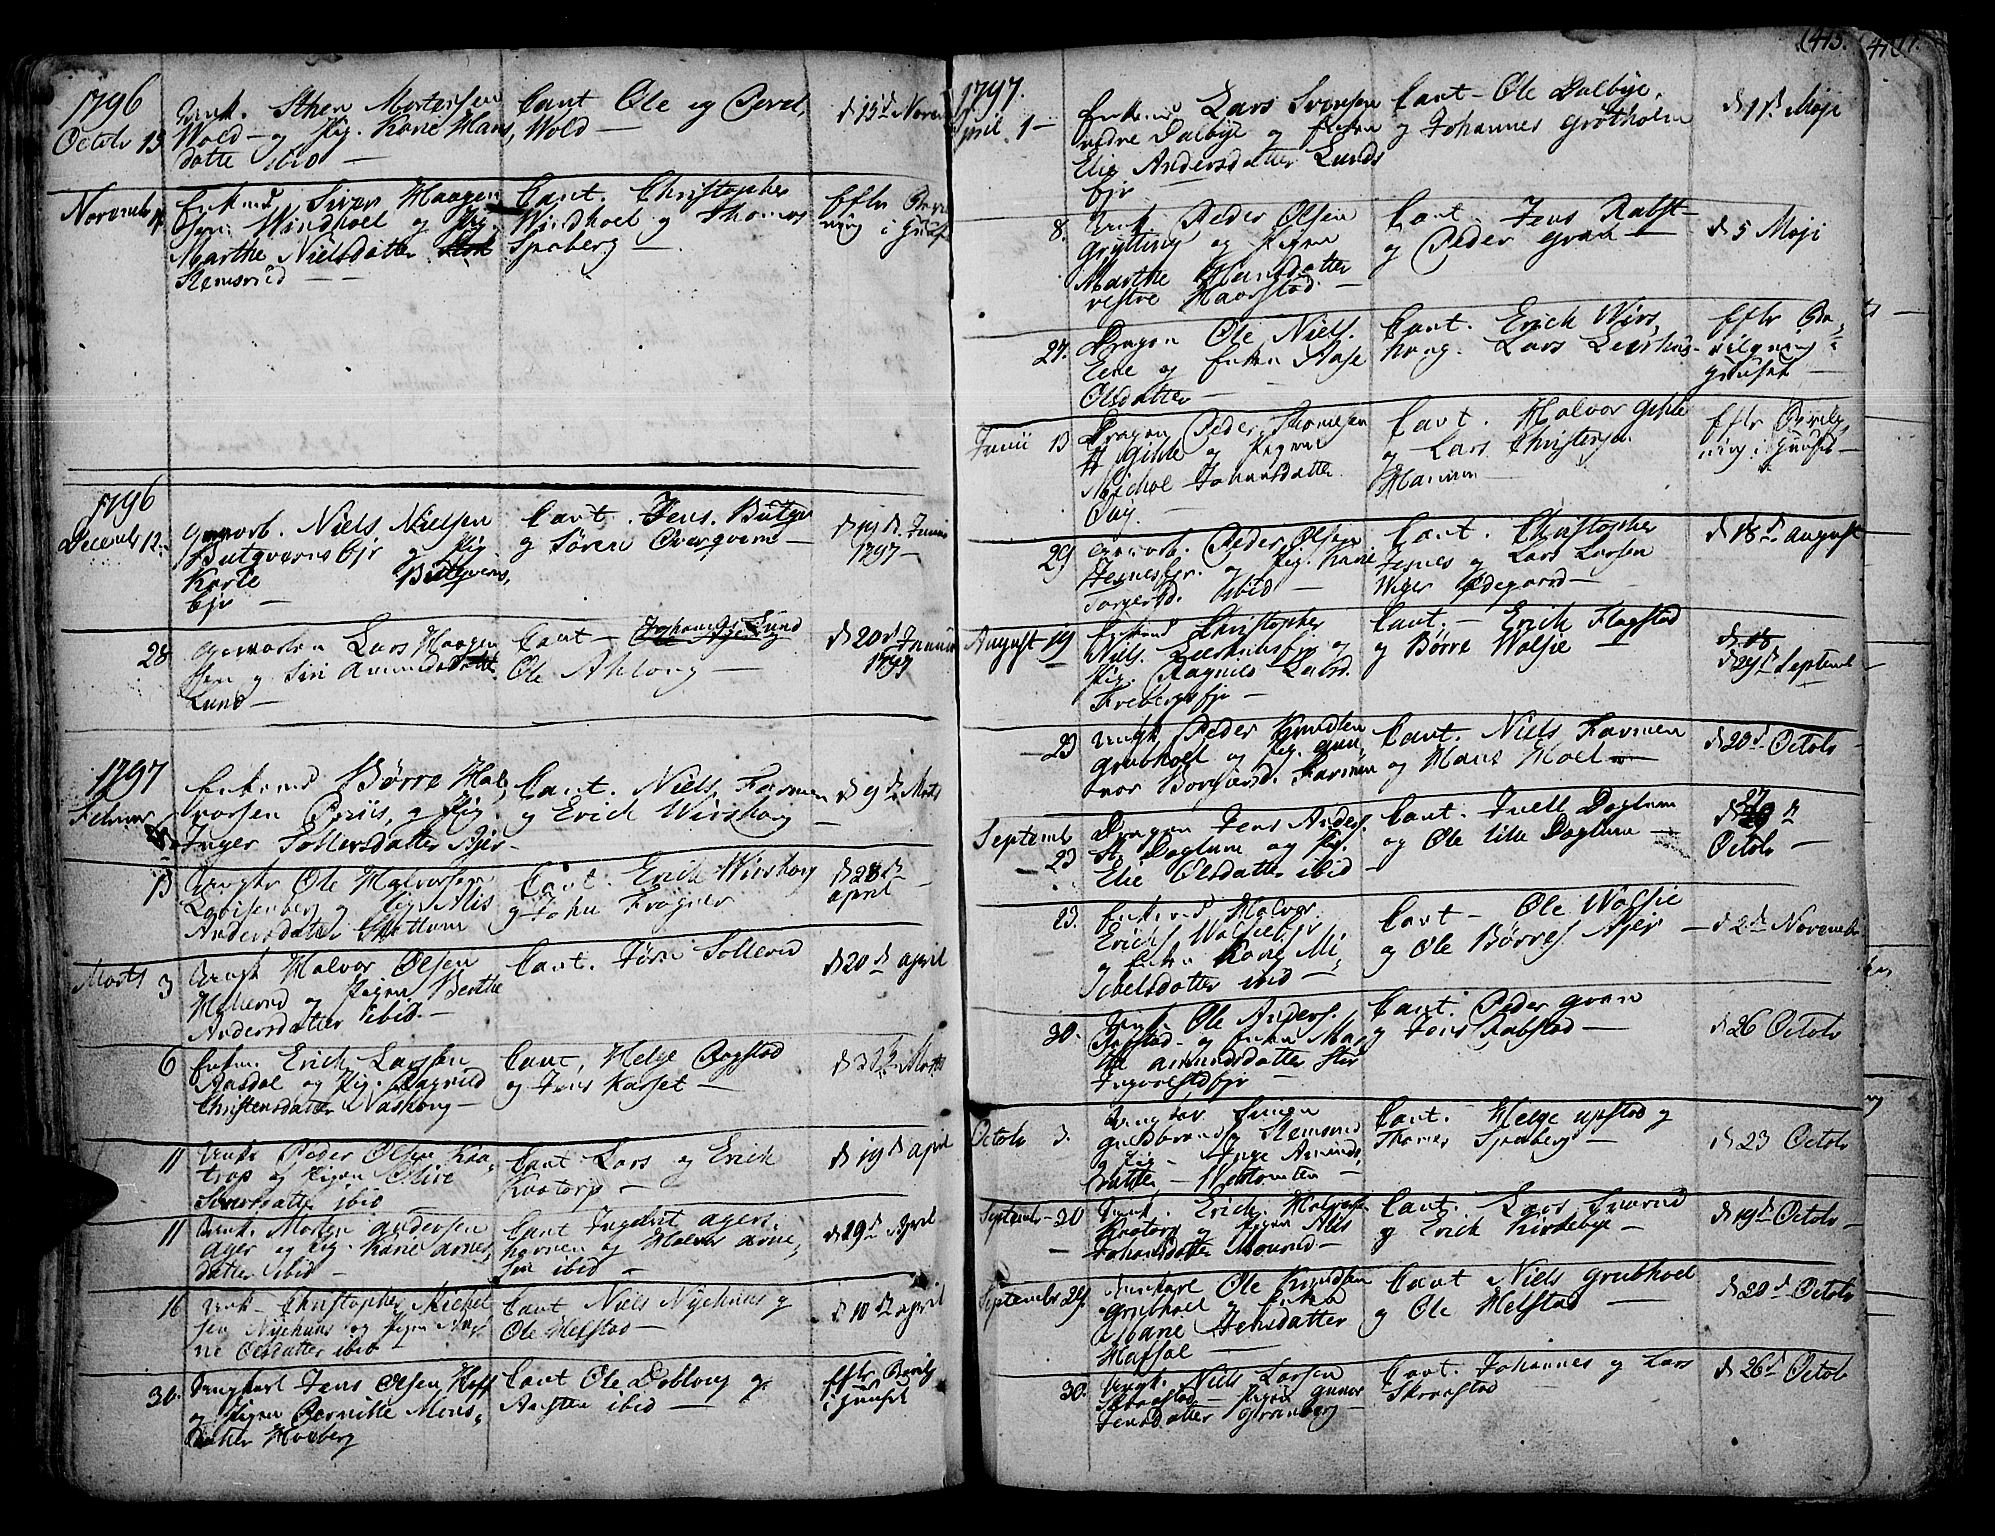 1796
Octobr 15
Ungk. Sthen Mortensen
Wold - og Pig. Kane Hans
datte ibid -
Caut Ole og Povel
Wold -
d 15de Novem
Novembr
Enkemd Siver Haagen
sen Windhoel og Pig.
Marthe Nielsdatter
Stemsrud -
Caut. Christopher
Windhoel og Thomas
Spaberg -
Efter Bevil
ning i Huset
1796
Decembr 12
Gevorb. Niels Nielsen
Butqvernsejr og Pig.
Karie Butqverns,
ejr -
Caut. Jens Butqv
og Søren Overqvern -
d 19de Januar
1797 -
28
Gevorben Lars Haagen
sen og Siri Amundsdatt
Lund -
Caut - Johannes Lund
Ole Ahlong -
d 20d Januar
1797
1797
Februar
Enkemd Børre Hal,
vorsen Priis, og Pig.
Inger Tollersdatter Ajer -
Caut. Niels Farmen
og Erich Wirskoug -
d 9de Marts
13
Ungkr Ole Halvorsen
Lovisenberg og Pig Alis
Andersdatter Skottum
Caut. Erich Wirskoug
og John Frogner
d 28de
april -
Marts 3
Ungk Halvor Olsen
Melierud og Pigen Berthe
Andersdatter ibid. -
Caut. Jørn Sollerud
d 20de april
6
Enkem Erich Larssen
Aasdal og Pig. Ragnild
Christensdatter Naskoug -
Caut, Helge Bogstad
og Jens Karset -
d 3 Marts
11
Ungk Peder Olsen Kaa,
torp og Pigen Olive
Siversdatte ibid
Caut Lars og Erich
Kaatorp -
d 19de april
11
Ungk. Morten andersen
ager og Pig. Kane arnes,
datter ibid -
Caut Ingebrit agers,
havnen og Halvor arne,
sen ibid -
d 29de April
16
Ungk. Christopher Michel
sen Nyehuus og Pigen An,
ne Olsdatter ibid
Caut Niels Nyehuus og
Ole Melstad -
d 10de april
30.
Ungkarl Jens Olsen Hoff
og Pigen Pernille Mons,
datter Hoeberg
Caut Ole Doblong og
Austen ibid -
Efter Bevilg
i Huset
415.
1797.
April 1 -
Enkemd Lars Svensen
nedre Dalbye og Enken
Elie Andersdatter Lunds
ejr
Caut - Ole Dalbye
og Johannes Grøtholm
d 11de Maji
8.
Ungk Peder Olsen
Grytting og Pigen
Marthe Hansdatter
vestre Haarstad -
Caut. Jens Rabst -
og Peder Gran -
d 5 Maji
27.
Dragon Ole Niels.
Eene og Enken Aase
Olsdatter -
Caut. Erich Wirs,
koug. Lars Leerhus -
Efter Be,
vilgning
Huuset -
Junii 13
Dragon Peder Thomesen
Gisle og Pigen
Michol Johansdatte
Caut. Halvor Gisle
og Lars Christensen
Harmen
Efter Bevilg
ning i Huuset -
29
Gevorb. Peder Olsen
Jesnesejr. og Pig. Kane
Torgersd. ibid -
Caut. Christopher
Jesnes og Lars Larsen
Wiger Ødegaard -
d 18de august
August 19
Enkemd Christopher
Niels. Leerhusejr og
Pig. Ragnild Larsd.
Frebergsejr -
Caut. - Erich Flagstad
og Børre Wolsie -
d 18
d 29de Septemb
- 23
Ungk Peder Knudsen
Grubhoel og Pig. Gun,
nor Borgersd. Farmen
Caut. Niels Farmen
og Hans Moel -
d 20de Octobr
Septembr
- 23
Dragon Jens Anders.
St. Doglum og Pig.
Elie Olsdatter ibid -
Caut. Juell Doglum
og Ole lille Doglum -
d 27 de
Octobr -
23.
Enkemd Halvor
Erichs Wolsieejr
og Enken Kane Mi,
chelsdatter ibid -
Caut - Ole Wolsie
og Ole Børres. Ajer
- d 2de Novembr
30.
Ungk. Ole Anders.
Bogstad - og Enken Mar,
the amundsdatter Stor
Ingvorstadejr -
Caut. Peder Gran
og Jens Rabstad -
d 26 Octobr
Octobr 3.
Ungkar Simen
Guldbrands Stemsrud
og Pig - Inge Amunds,
datter - Westomten -
Caut. - Helge Upstad og
Thomes Spaberg -
d 23 Octobr
Septembr - 30
Ungk. Erich. Halvors
Kaatorp og Pigen Alis
Johansdatter Mourud -
Caut. Lars Snarud
og Erich Kirkebye -
d 19de Octobr -
Septembr 29.
Ungkarl Ole Knudsen
Grubhoel og Enken
Marie Jensdatter
Hafsal -
Caut Niels Grubhoel
og Ole Melstad -
d 20de Octobr
30.
Ungk. Niels Larsen
Skraastad - Pigen Gunor
Jensdatter Grønberg -
Caut. Johannes og Lars
Skraastad -
d 26de Octobr